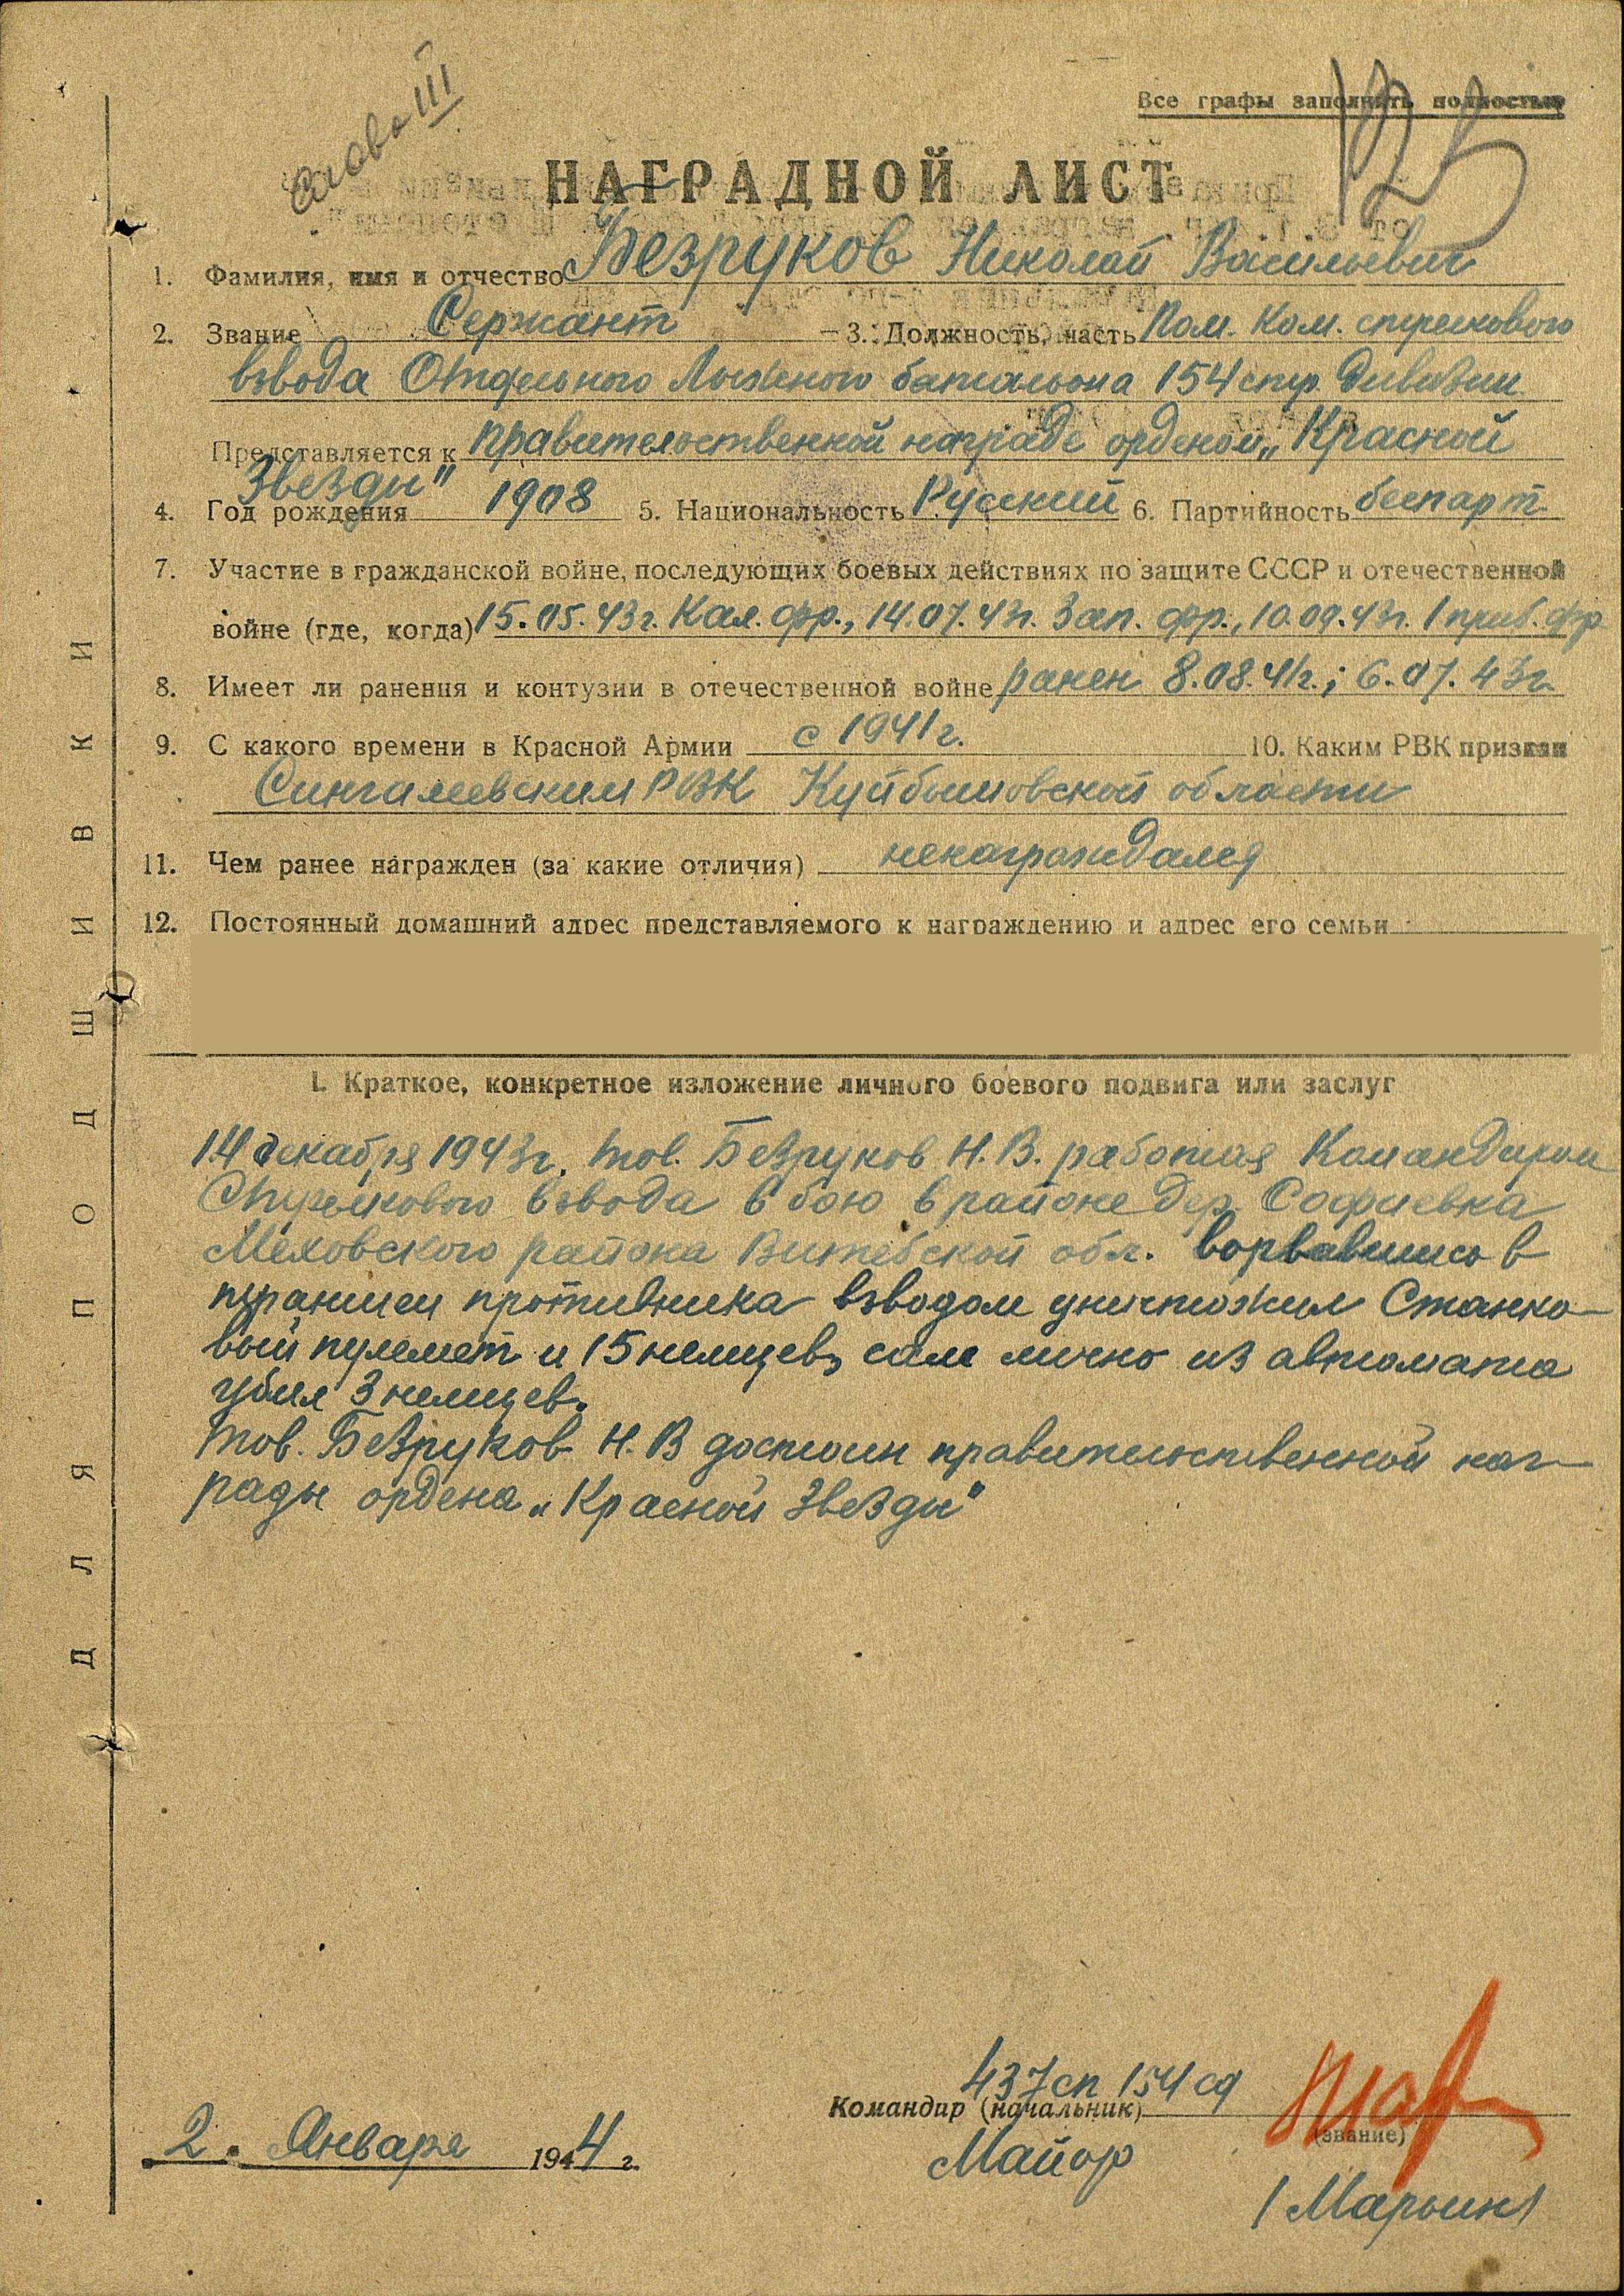 Слава III
Все графы заполнить полностью
НАГРАДНОЙ ЛИСТ
1. Фамилия, имя и отчество Безруков Николай Васильевич
2. Звание Сержант 3. Должность, часть Пом. Ком. стрелкового
взвода Отдельного Лыжного батальона 154 стр. дивизии
Представляется к правительственной награде орденом „Красной
Звезды"
4. Год рождения 1908 5. Национальность Русский 6. Партийность беспарт.
7. Участие в гражданской войне, последующих боевых действиях по защите СССР и отечественной
войне (где, когда) 15.05.43г. Кал. фр., 14.07.43г. Зап. фр., 10.09.43г. 1 приб. фр
8. Имеет ли ранения и контузии в отечественной войне ранен 8.08.41г.; 6.07.43г.
9. С какого времени в Красной Армии с 1941г. 10. Каким РВК призван
Сингилеевским РВК Куйбышовской области
11. Чем ранее награжден (за какие отличия) ненаграждался
12. Постоянный домашний адрес представляемого к награждению и адрес его семьи
I. Краткое, конкретное изложение личного боевого подвига или заслуг
14 декабря 1943г. тов. Безруков Н.В. работая Командиром
Стрелкового взвода в бою в районе дер. Софиевка
Меховского района Витебской обл. ворвавшись в
траншеи противника взводом уничтожил Станко-
вый пулемет и 15 немцев, сам лично из автомата
убил 3 немцев.
Тов. Безруков Н.В достоин правительственной наг-
рады ордена „Красной Звезды"
437 сп 154 сд
Командир (начальник)
(звание)
Майор
/Марьин/
2. Января 1944 г.
ДЛЯ ПОДШИВКИ